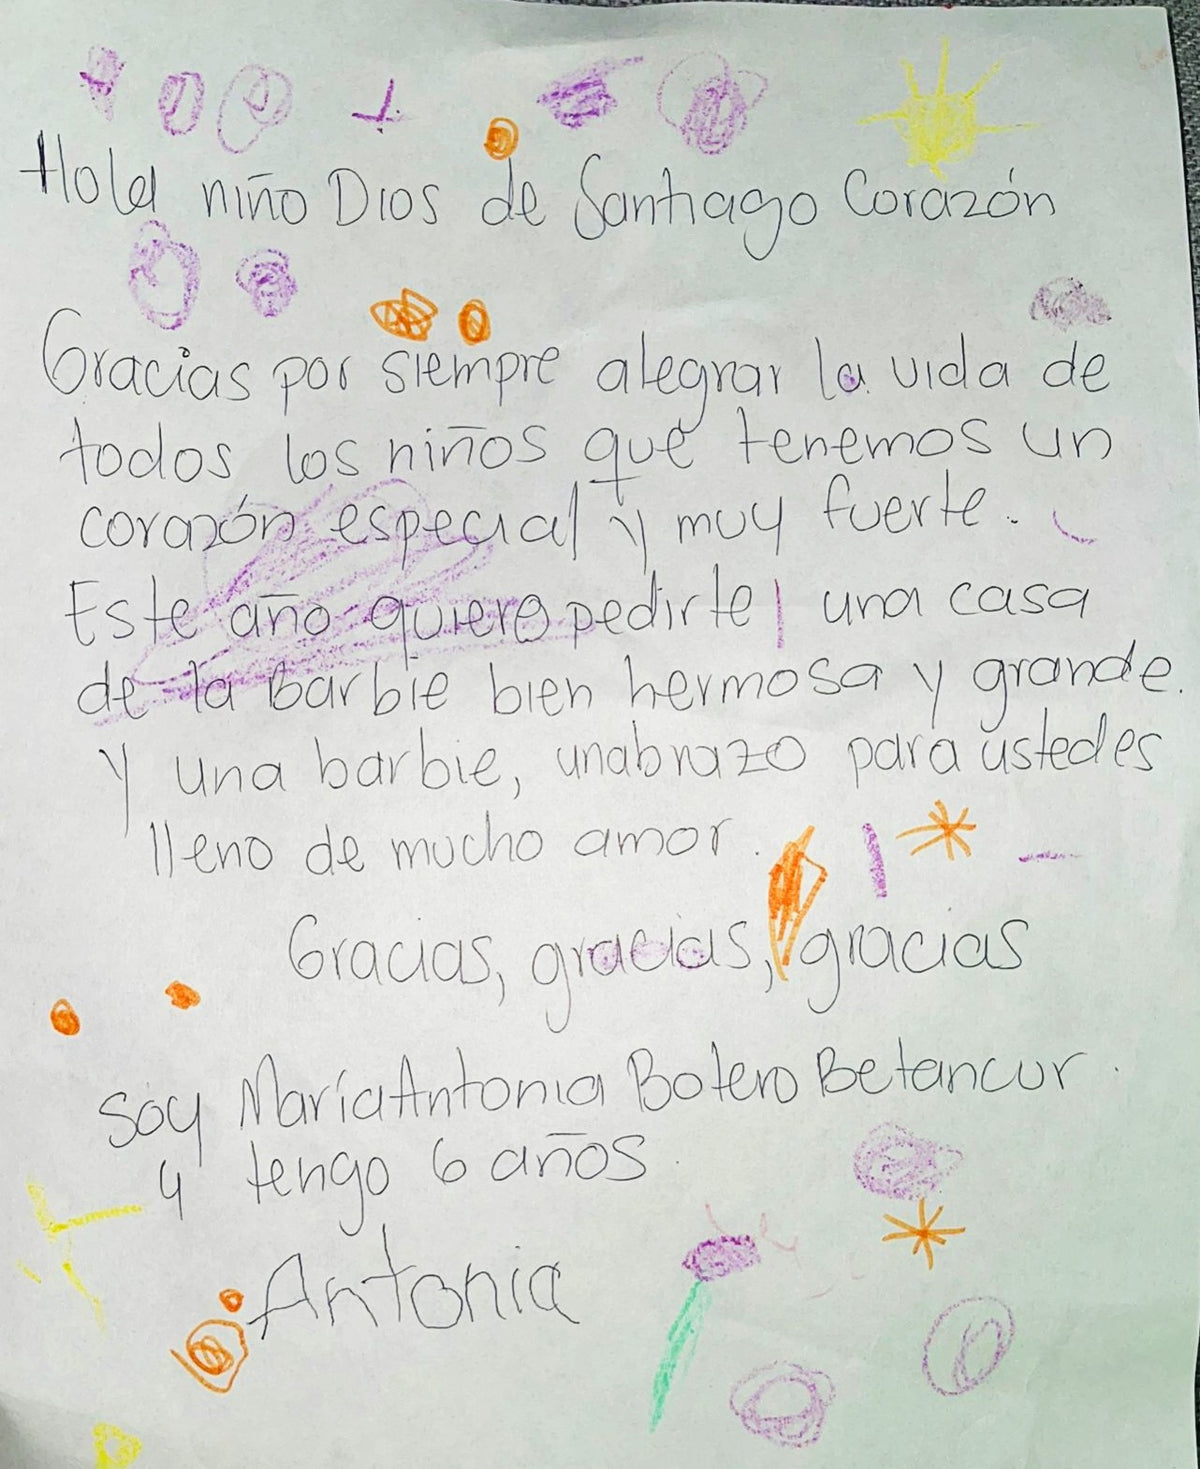 Hola niño Dios de Santiago Corazón
Gracias por siempre alegrar la vida de
todos los niños que tenemos un
corazón especial y muy fuerte.
Este año quiero pedirte una casa
de la barbie bien hermosa y grande.
y una barbie, un abrazo para ustedes
lleno de mucho amor.
Gracias, gracias, gracias
Soy María Antonia Botero Betancur.
y tengo 6 años.
Antonia